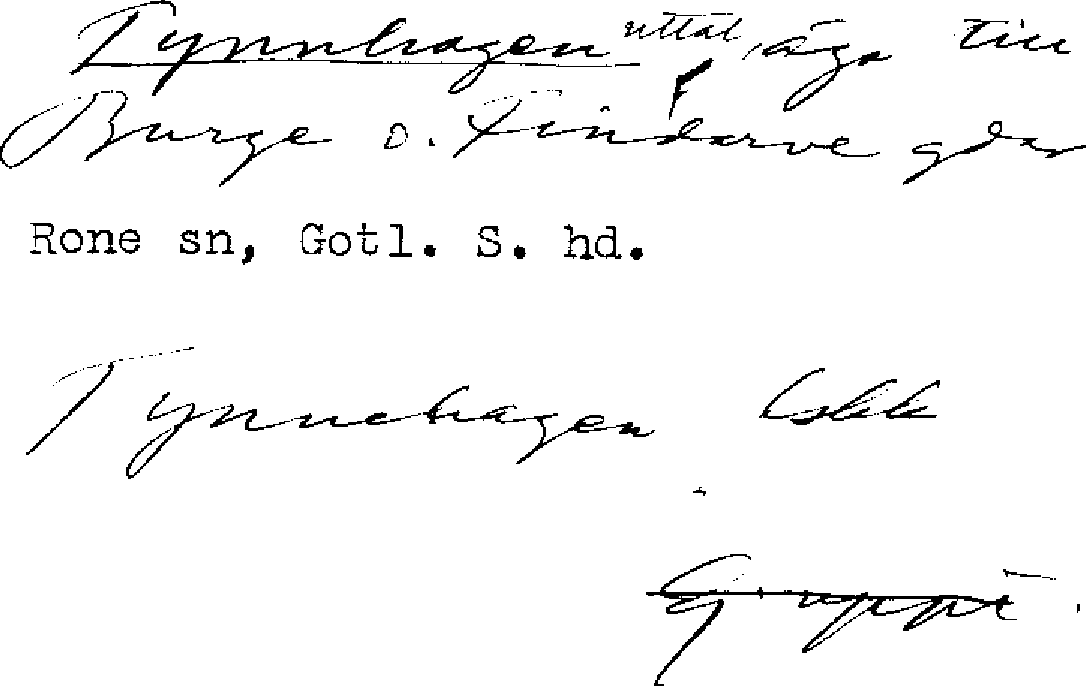 Tynnhagen uttal, äga till
Burge o. Findarve gdar
Rone sn, Gotl. S. hd.
Tynnehagen Lskk